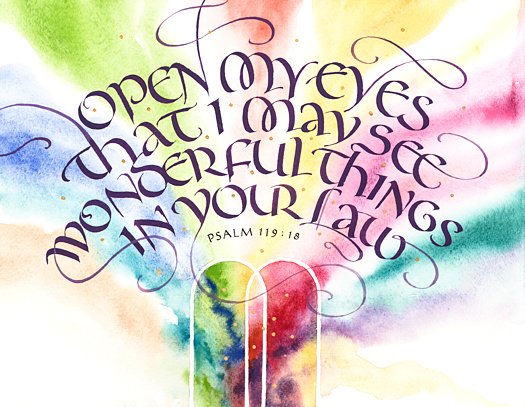 OPEN MY EYES
that I MAY SEE
WONDERFUL THINGS
IN YOUR LAW
PSALM 119:18